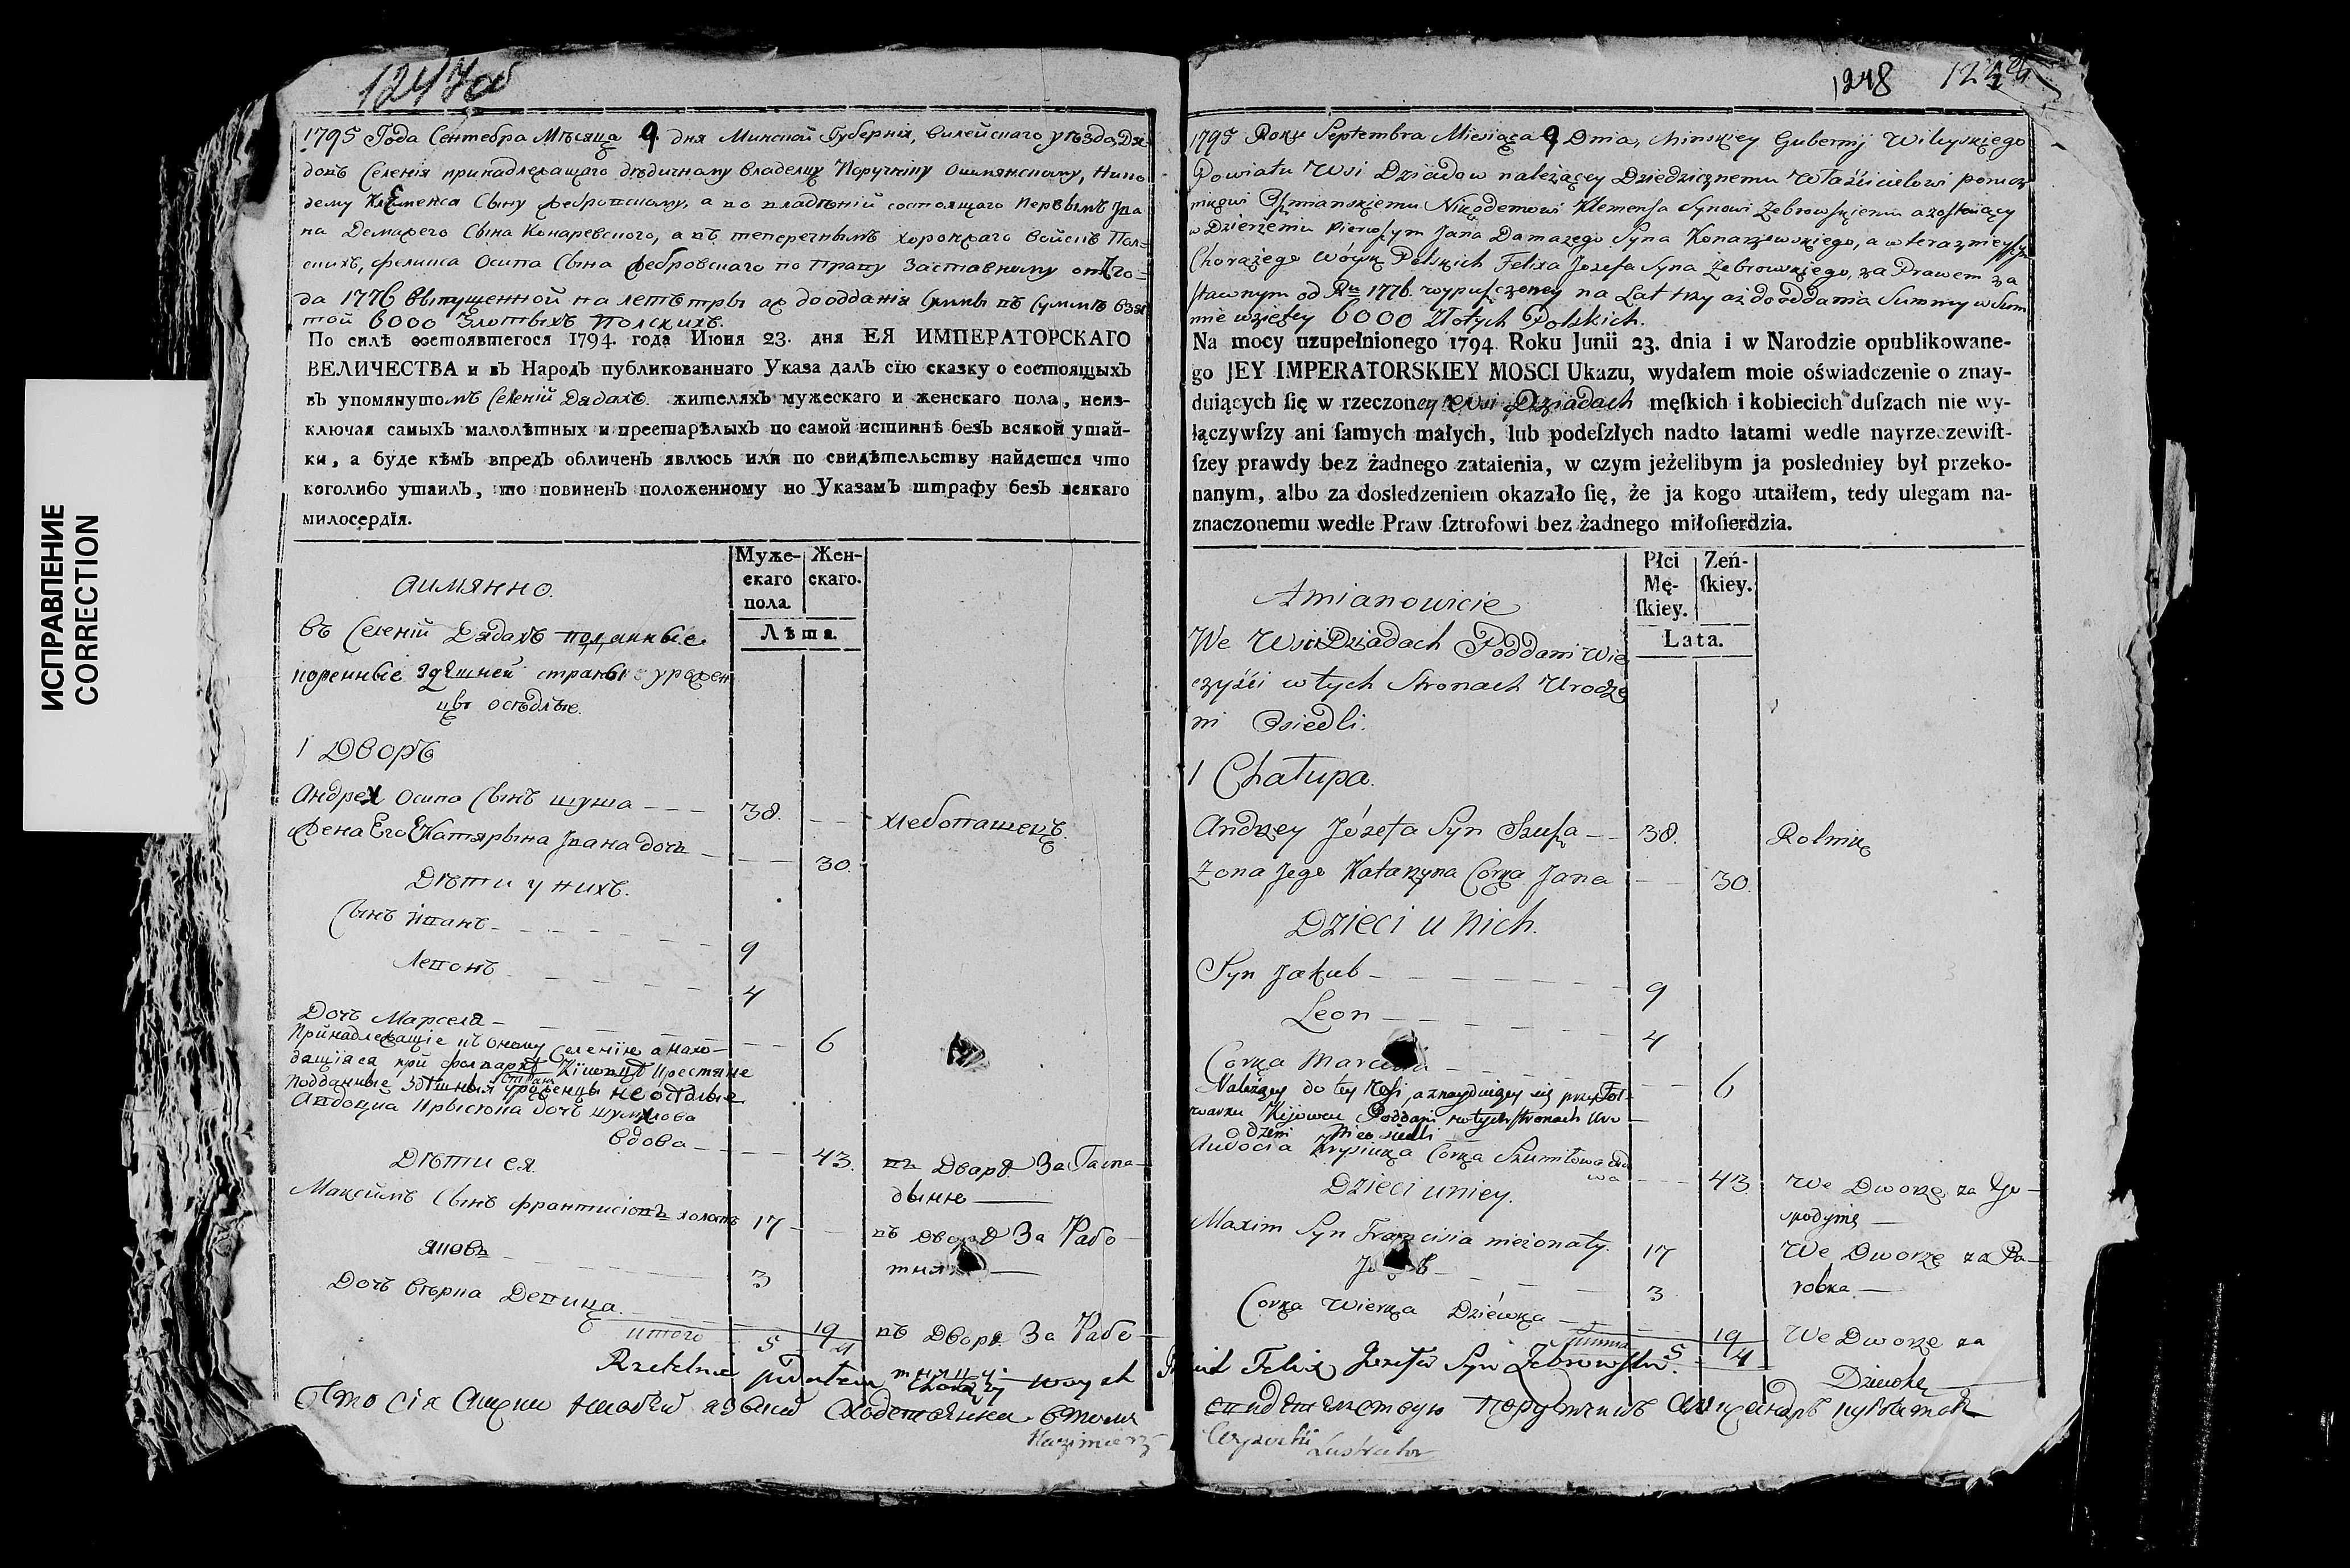 ИСПРАВЛЕНИЕ
CORRECTION
1247об
1795 Года Сентебра Мѣсяца 9 дня Минской Губерніи, Вилейскаго уѣзда, Дя-
довъ Селенія принадлежащаго дѣдичному владелцу Поручнику Ошмянскому, Нико
дему Клеменса Сыну Жебровскому, а во владѣніи состоящаго Первымъ Ива
на Демазего Сына Конаревского, а въ теперечнымъ хоронжаго Войскъ Пол-
скихъ, Феликса Осипа Сына Жебровскаго по праву Заставному отъ го-
да 1776 выпущенной на летъ тры аж до отдання Сумы въ Сумме взя
той 6000 Злотыхъ Полскихъ.
По силѣ состоявшегося 1794. года Июня 23. дня ЕЯ ИМПЕРАТОРСКАГО
ВЕЛИЧЕСТВА и въ Народъ публикованнаго Указа далъ сїю сказку о состоящыхъ
въ упомянутомъ Селеній Дядахъ жителяхъ мужескаго и женскаго пола, неиз-
ключая самыхъ малолѣтныхъ и престарѣлыхъ по самой истиннѣ безъ всякой утай-
ки, а буде кѣмъ впредъ обличенъ явлюсь или по свидѣтельству найдется что
коголибо утаилъ, то повиненъ положенному по Указамъ штрафу безъ всякаго
милосердїя.
Муже-
скаго
пола.
Жен-
скаго.
Лѣта.
аимянно.
въ Селеній Дядахъ подданные
коренные здешней страны урожен
цы оседлые.
1 Дворъ
Андрей Осипа Сынъ шуша 38. хлебопашецъ.
Жена Его Катярына Ивана дочь 30.
Дѣти у нихъ.
Сынъ 9
Левонъ 4
Дочъ Марселя 6
Принадлежащіе къ оному Селенію а нахо-
дящіяся при фолварке Кіювцѣ крестяне
подданные здѣшныя Стран уроженцы неоседлые
Авдоция Крысюка дочъ шумилова
вдова 43. въ Дваре За Гаспа-
дыню
Дѣти ея.
Максимъ Сынъ Франтисіовъ холостъ 17 въ дворе За Рабо
Яковъ 3
Дочъ вѣрка Девица. 19 въ Дворе За Рабо
тницу
итого 5 4
1248
1795 Roku Septembra Miesiąca 9 Dnia, Minskiey Gubernij Wileyskiego
Powiatu Wsi Dziadow należącey Dziedzicznemu Właścicielowi Porucz
nikowi Oszmianskiemu Nikodemowi Klemensa Synowi Żebrowskiemu a zostaiący
w Dzierżeniu Pierwszym Jana Damazego Syna Konarzewskiego, a w teraznieyszym
Chorążego Wóysk Polskich Felixa Jozefa Syna Żebrowskiego, za Prawem za
stawnym od Ru 1776. wypuszczoney na Lat trzy aż do oddania Summy w Sum
mie wziętey 6000 Złotych Polskich.
Na mocy uzupełnionego 1794. Roku Junii 23. dnia i w Narodzie opublikowane-
go JEY IMPERATORSKIEY MOSCI Ukazu, wydałem moie oświadczenie o znay-
duiących ſię w rzeczoney Wsi Dziadach męſkich i kobiecich duſzach nie wy-
łączywſzy ani ſamych małych, lub podeſzłych nadto latami wedle nayrzeczewiſt-
ſzey prawdy bez żadnego zataienia, w czym jeżelibym ja posledniey był przeko-
nanym, albo za dosledzeniem okazało ſię, że ja kogo utaiłem, tedy ulegam na-
znaczonemu wedle Praw ſztrofowi bez żadnego miłoſierdzia.
Płci
Mę-
ſkiey.
Zeń-
ſkiey.
Lata.
Amianowicie
We Wsi Dziadach Poddani Wie
czyści w tych Stronach Urodze
ni Osiedli.
1 Chałupa.
Andrzey Józefa Syn Szusza 38. Rolnik
Zona Jego Katarzyna Corka Jana 30.
Dzieci u nich.
Syn Jakub 9
Leon 4
Corka 6
Należący do tey Wsi, a znayduiący się przy Fol-
warku Kijowcu Poddani w tych stronach Uro
dzeni Nieosiedli
Audocia Krysiuka Corka Szumiłowa wdo
wa 43. We Dworze za Go-
spodynię
Dzieci u niey.
Maxim Syn Franciszka nieżonaty. 17 We Dworze za Pa-
robka
3
Corka Wierka Dziéwka 19 We Dworze za
Dziewkę
Summa 5 4
Felix Jozefa Syn Żebrowski
Kazimierz
Lustrator